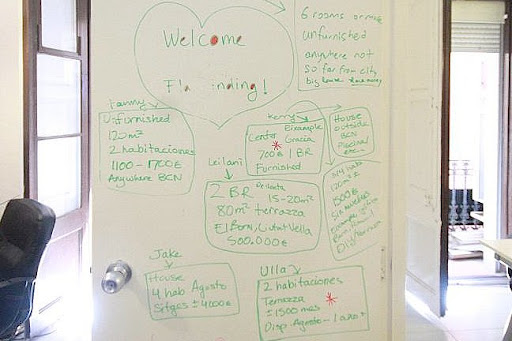 Welcome
6 rooms or more
unfurnished
anywhere not
so far from city
big house
Fanny
Unfurnished
120m²
2 habitaciones
1100 - 1700€
Anywhere BCN
Kerry
Center Eixample
Gracia
700€ 1 BR
Furnished
House
outside
BCN
etc...
Leilani
2 BR
15-20m²
80m² terrazza
El Born, Ciutat Vella
500.000€
120m²
1500€
Sin muebles
Jake
House
4 hab Agosto
Sitges ± 4000€
Ulla
2 habitaciones
Terrazza
± 1500 mes
Disp. Agosto - 1 año